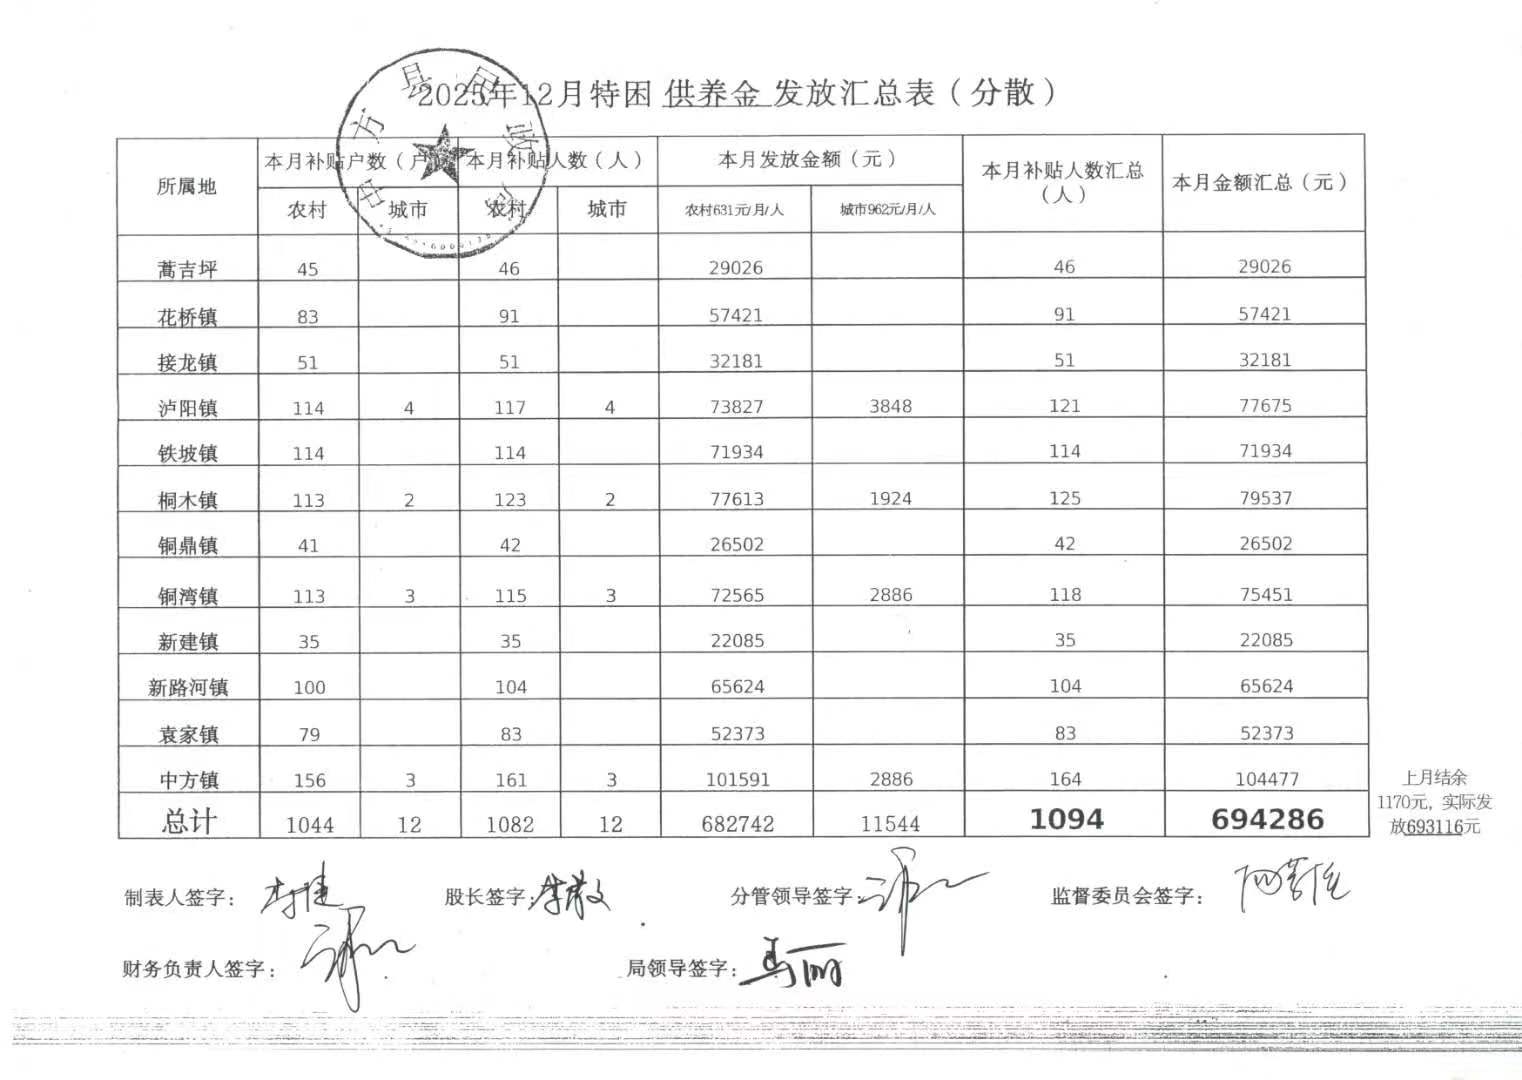 2025年12月特困 供养金 发放汇总表（分散）
中方县民政局
所属地 本月补贴户数（户） 本月补贴人数（人） 本月发放金额（元） 本月补贴人数汇总（人） 本月金额汇总（元）
农村 城市 农村 城市 农村631元/月/人 城市962元/月/人
蒿吉坪 45 46 29026 46 29026
花桥镇 83 91 57421 91 57421
接龙镇 51 51 32181 51 32181
泸阳镇 114 4 117 4 73827 3848 121 77675
铁坡镇 114 114 71934 114 71934
桐木镇 113 2 123 2 77613 1924 125 79537
铜鼎镇 41 42 26502 42 26502
铜湾镇 113 3 115 3 72565 2886 118 75451
新建镇 35 35 22085 35 22085
新路河镇 100 104 65624 104 65624
袁家镇 79 83 52373 83 52373
中方镇 156 3 161 3 101591 2886 164 104477
总计 1044 12 1082 12 682742 11544 1094 694286
上月结余
1170元，实际发
放693116元
制表人签字： 股长签字： 分管领导签字： 监督委员会签字：
财务负责人签字： 局领导签字：马丽